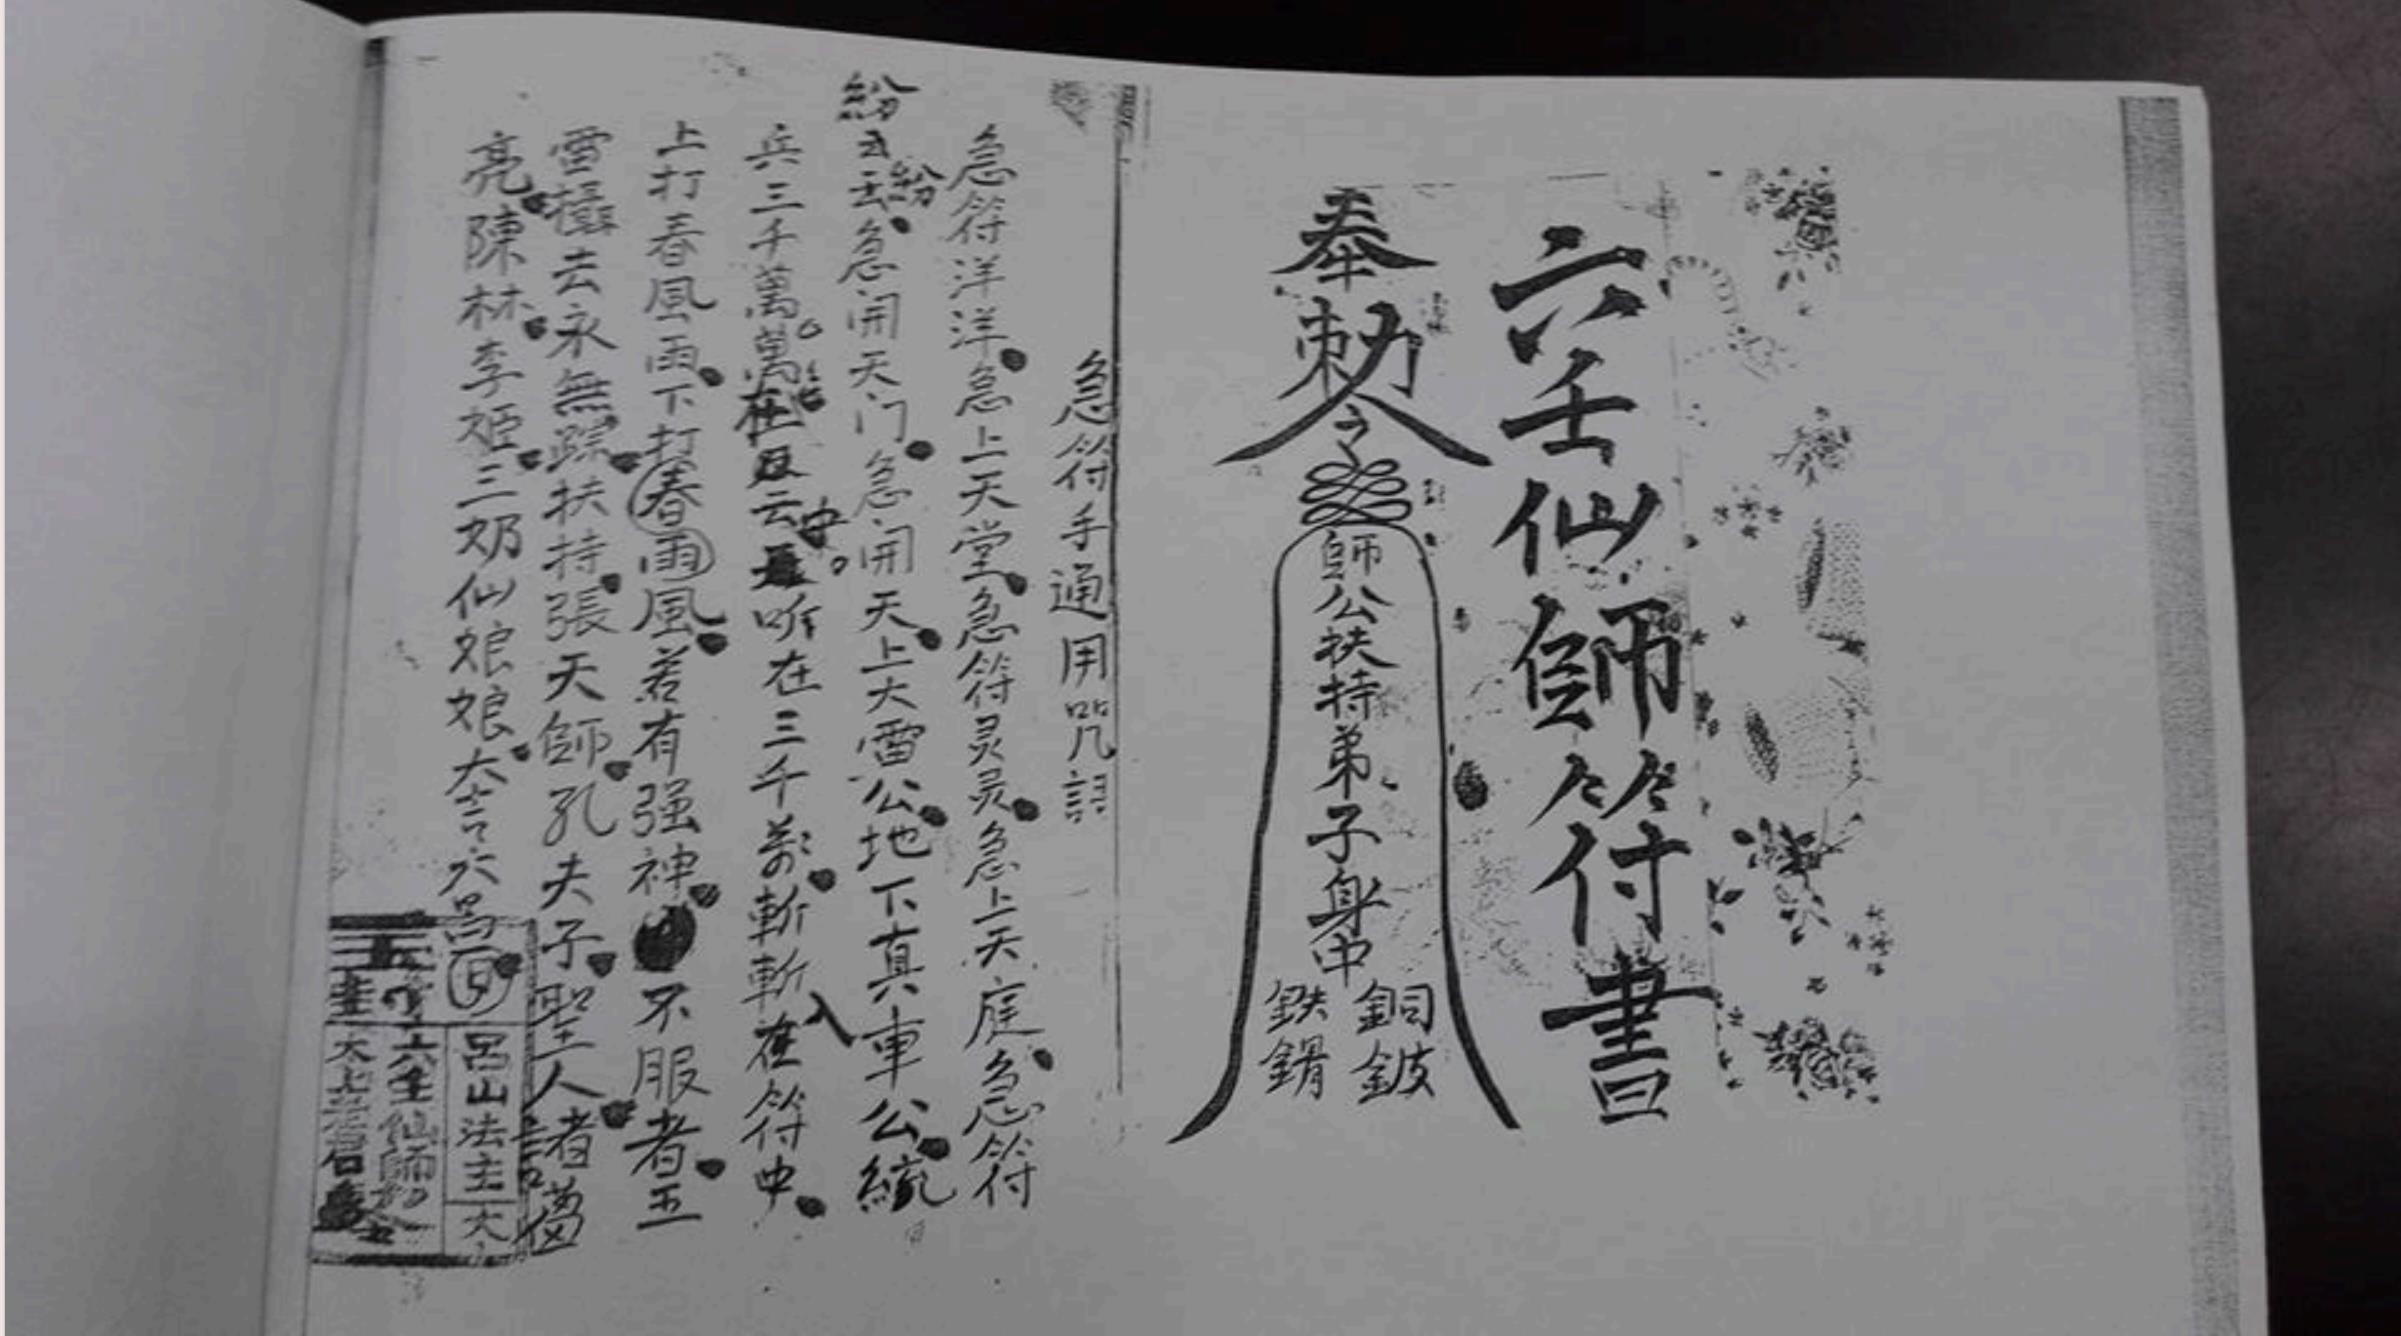 六壬仙師符書
奉勅令
師公扶持弟子身中
銅鈹
鉄錆
急符手通用咒語
急符洋洋急上天堂急符灵灵急上天庭急符
紛云紛云急開天门急開天上大雷公地下真車公統
兵三千萬萬在云中听在三千萬斬斬在入符中
上打春風雨下打春雨風若有强神不服者五
雷攝去永無踪扶持張天師孔夫子聖人者
亮陳林李姬三奶仙娘娘
呂山法主大
六壬仙師
太上老君